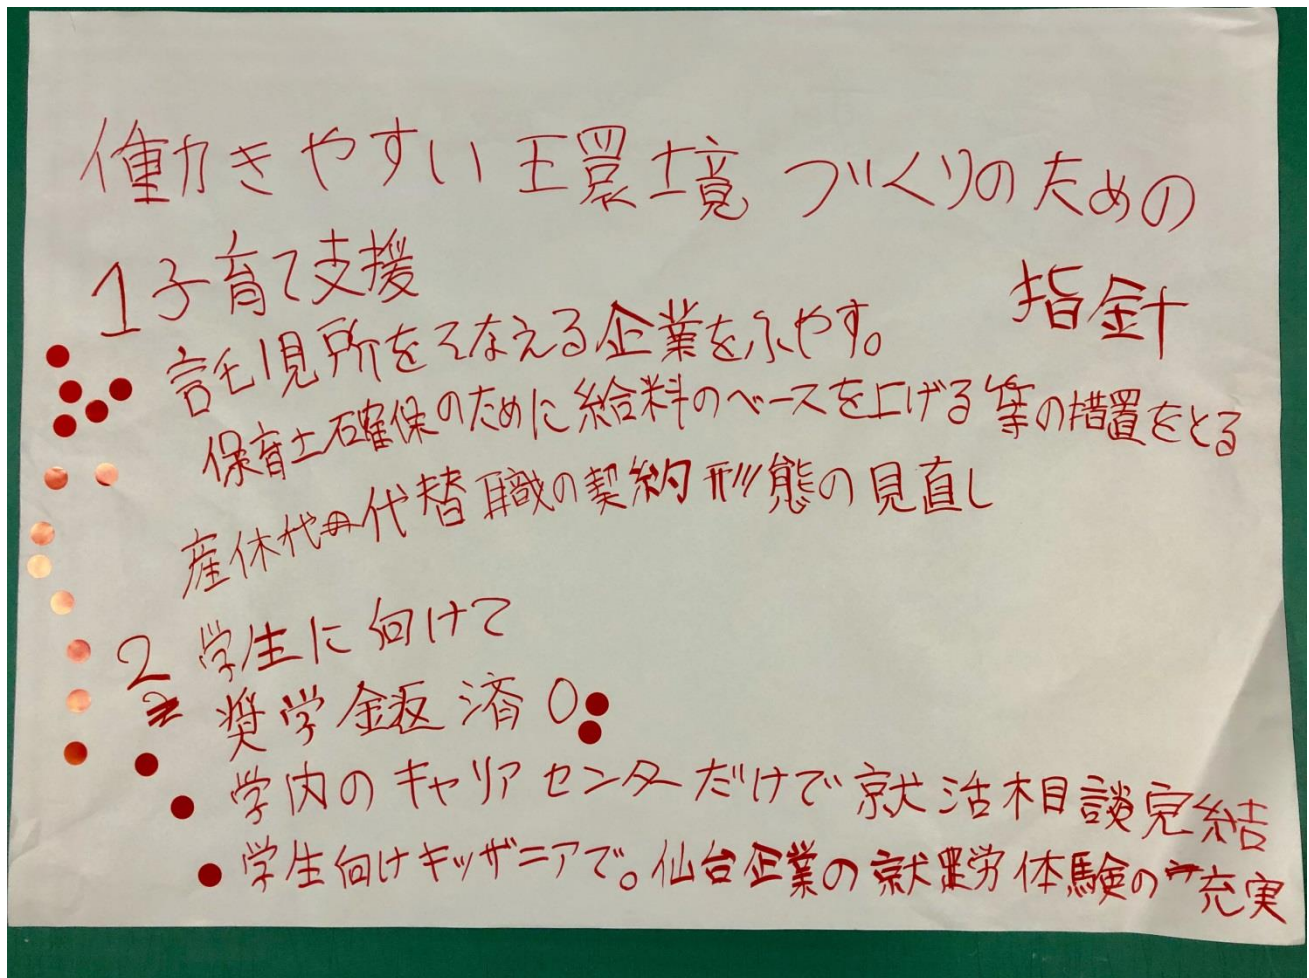 働きやすい環境づくりのための
指針
1 子育て支援
託児所をそなえる企業をふやす。
保育士確保のために給料のベースを上げる等の措置をとる
産休代替職の契約形態の見直し
2 学生に向けて
奨学金返済0
学内のキャリアセンターだけで就活相談完結
学生向けキッザニアで。仙台企業の就労体験の充実